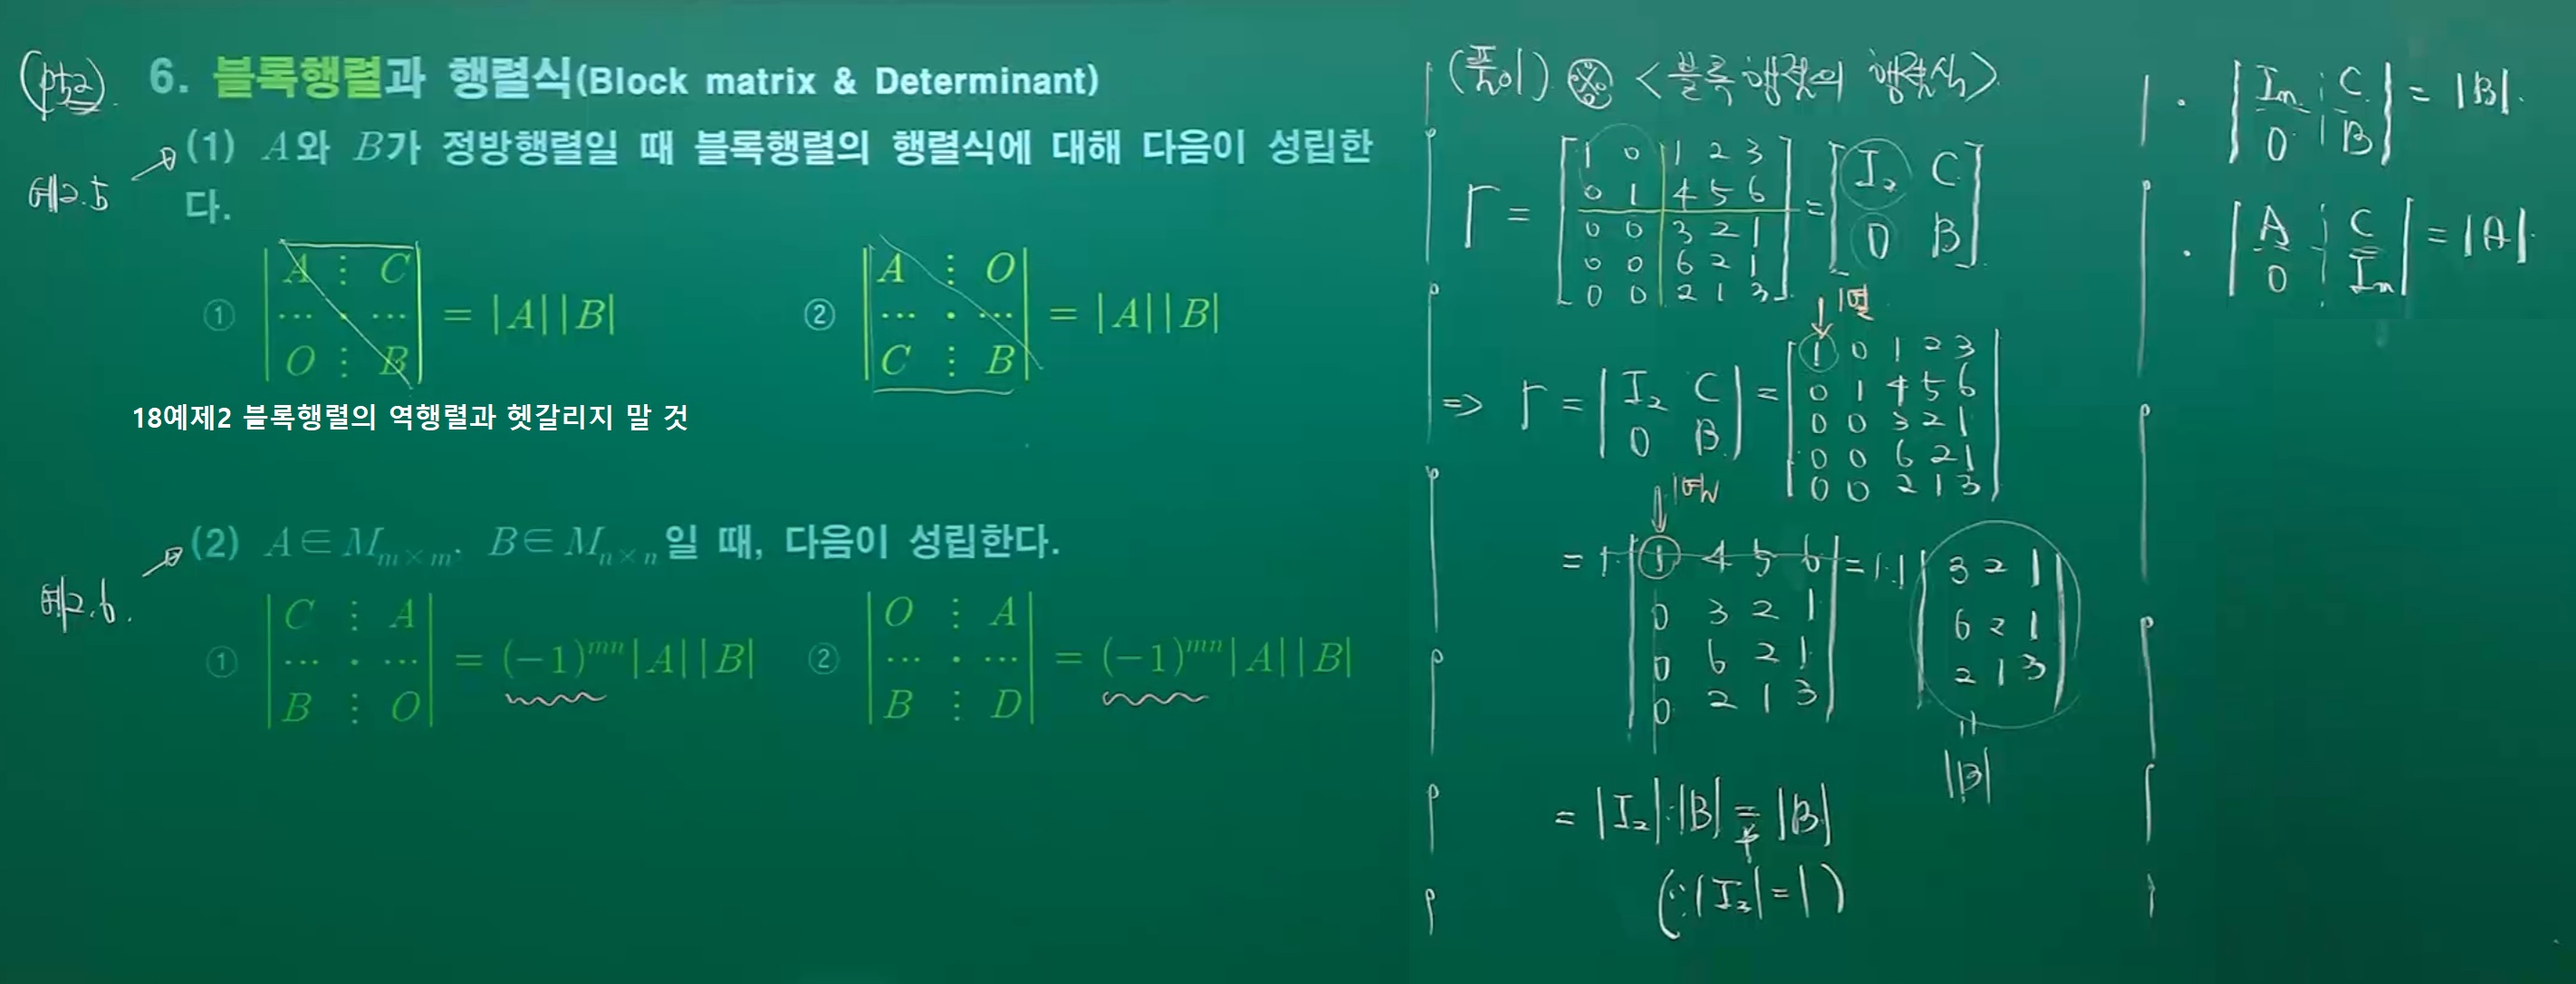 (p52).
6. 블록행렬과 행렬식(Block matrix & Determinant)
예2.5
(1) A와 B가 정방행렬일 때 블록행렬의 행렬식에 대해 다음이 성립한
다.
① | A ⋮ C |
| ⋯ · ⋯ | = |A||B|
| O ⋮ B |
② | A ⋮ O |
| ⋯ · ⋯ | = |A||B|
| C ⋮ B |
18예제2 블록행렬의 역행렬과 헷갈리지 말 것
예2.6.
(2) A∈M_{m×m}, B∈M_{n×n}일 때, 다음이 성립한다.
① | C ⋮ A |
| ⋯ · ⋯ | = (−1)^{mn}|A||B|
| B ⋮ O |
② | O ⋮ A |
| ⋯ · ⋯ | = (−1)^{mn}|A||B|
| B ⋮ D |
(풀이) ※ <블록행렬의 행렬식>
Γ = [ 1 0 1 2 3
0 1 4 5 6
0 0 3 2 1
0 0 6 2 1
0 0 2 1 3 ] = [ I₂ C
0 B ]
1열
=> Γ = | I₂ C
0 B | = | 1 0 1 2 3
0 1 4 5 6
0 0 3 2 1
0 0 6 2 1
0 0 2 1 3 |
1열
= 1· | 1 4 5 6
0 3 2 1
0 6 2 1
0 2 1 3 | = 1·1 | 3 2 1
6 2 1
2 1 3 |
=
|B|
= |I₂|·|B| = |B|
(∵ |I₂| = 1)
· | Iₙ C
0 B | = |B|.
· | A C
0 Iₙ | = |A|.